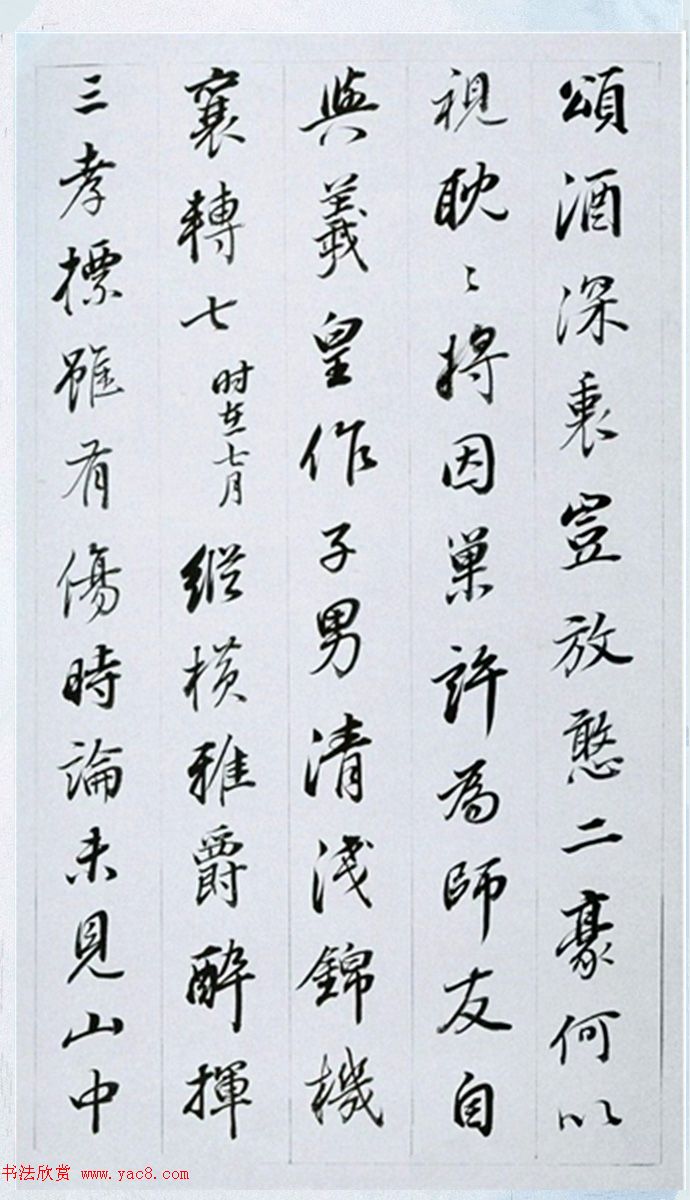 頌酒深衷豈放憨二豪何以
視眈〻將因巢許為師友自
與羲皇作子男清淺錦機
襄轉七时在七月縱橫雅爵醉揮
三孝標雖有傷時論未見山中
书法欣赏 www.yac8.com